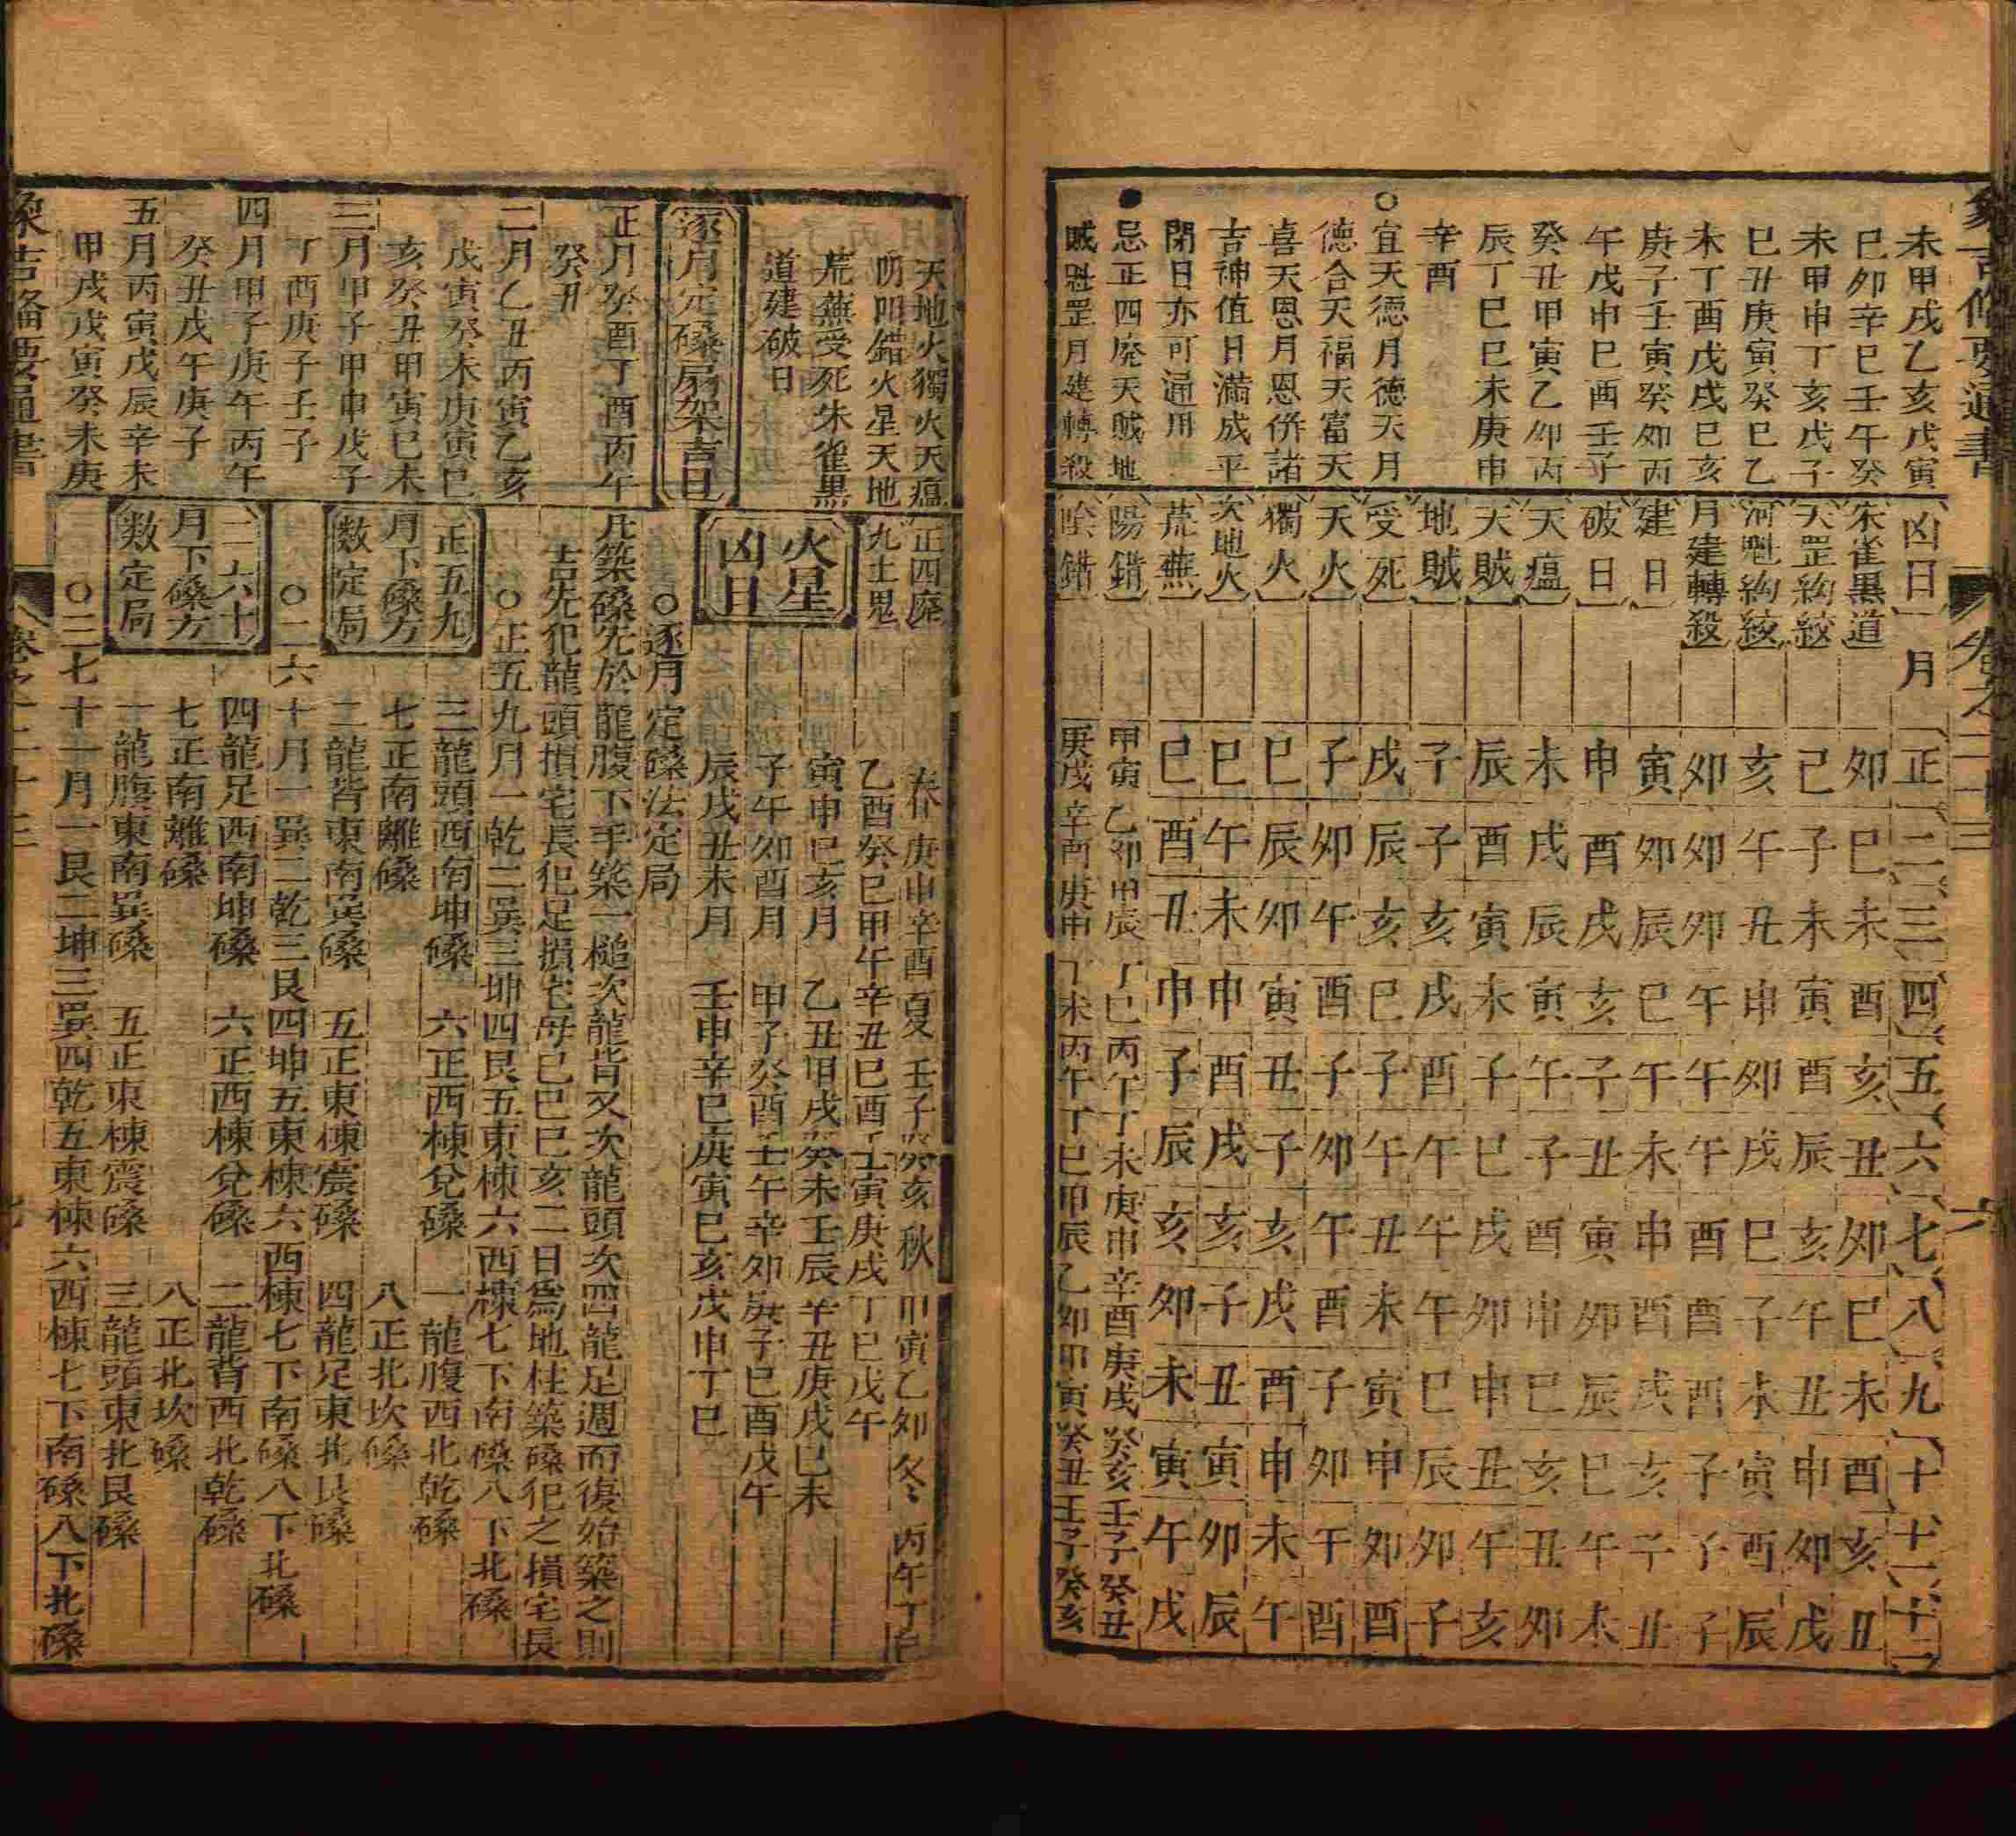 象吉備要通書
卷之二十三
六
未甲戌乙亥戊寅
巳卯辛巳壬午癸
未甲申丁亥戊子
巳丑庚寅癸巳乙
未丁酉戊戌巳亥
庚子壬寅癸卯丙
午戊申巳酉壬子
癸丑甲寅乙卯丙
辰丁巳巳未庚申
辛酉
○宜天德月德天月
德合天福天富天
喜天恩月恩併諸
吉神值日滿成平
開日亦可通用
●忌正四廢天賊地
賊魁罡月建轉殺
凶日 月 正 二 三 四 五 六 七 八 九 十 十一 十二
朱雀黑道 卯 巳 未 酉 亥 丑 卯 巳 未 酉 亥 丑
天罡絢絞 巳 子 未 寅 酉 辰 亥 午 丑 申 卯 戌
河魁絢絞 亥 午 丑 申 卯 戌 巳 子 未 寅 酉 辰
月建轉殺 卯 卯 卯 午 午 午 酉 酉 酉 子 子 子
建日 寅 卯 辰 巳 午 未 申 酉 戌 亥 子 丑
破日 申 酉 戌 亥 子 丑 寅 卯 辰 巳 午 未
天瘟 未 戌 辰 寅 午 子 酉 申 巳 亥 丑 卯
天賊 辰 酉 寅 未 子 巳 戌 卯 申 丑 午 亥
地賊 子 子 亥 戌 酉 午 午 午 巳 辰 卯 子
受死 戌 辰 亥 巳 子 午 丑 未 寅 申 卯 酉
天火 子 卯 午 酉 子 卯 午 酉 子 卯 午 酉
獨火 巳 辰 卯 寅 丑 子 亥 戌 酉 申 未 午
次地火 巳 午 未 申 酉 戌 亥 子 丑 寅 卯 辰
荒蕪 巳 酉 丑 申 子 辰 亥 卯 未 寅 午 戌
陽錯 甲寅 乙卯 甲辰 丁巳 丙午 丁未 庚申 辛酉 庚戌 癸亥 壬子 癸丑
陰錯 庚戌 辛酉 庚申 丁未 丙午 丁巳 甲辰 乙卯 甲寅 癸丑 壬子 癸亥
天地火獨火天瘟
陰陽錯火星天地
荒蕪受死朱雀黑
道建破日
逐月定磉扇架吉日
正月癸酉丁酉丙午
癸丑
二月乙丑丙寅乙亥
戊寅癸未庚寅巳
亥癸丑甲寅巳未
三月甲子甲申戊子
丁酉庚子壬子
四月甲子庚午丙午
癸丑戊午庚子
五月丙寅戊辰辛未
甲戌戊寅癸未庚
正四廢 春 庚申辛酉 夏 壬子癸亥 秋 甲寅乙卯 冬 丙午丁巳
九土鬼 乙酉癸巳甲午辛丑巳酉壬寅庚戌丁巳戊午
火星凶日
寅申巳亥月 乙丑甲戌癸未壬辰辛丑庚戌巳未
子午卯酉月 甲子癸酉壬午辛卯庚子巳酉戊午
辰戌丑未月 壬申辛巳庚寅巳亥戊申丁巳
○逐月定磉法定局
凡築磉先於龍腹下手築一槌次龍背又次龍頭次四龍足週而復始築之則
吉先犯龍頭損宅長犯足損宅母巳巳巳亥二日為地柱築磉犯之損宅長
○正五九月一乾二巽三坤四艮五東棟六西棟七下南磉八下北磉
正五九月下磉方数定局
三龍頭西南坤磉 六正西棟兌磉 一龍腹西北乾磉
七正南離磉 八正北坎磉
二龍背東南巽磉 五正東棟震磉 四龍足東北艮磉
○二六十月一巽二乾三艮四坤五東棟六西棟七下南磉八下北磉
二六十月下磉方数定局
四龍足西南坤磉 六正西棟兌磉 二龍背西北乾磉
七正南離磉 八正北坎磉
一龍腹東南巽磉 五正東棟震磉 三龍頭東北艮磉
○三七十一月一艮二坤三巽四乾五東棟六西棟七下南磉八下北磉
象吉備要通書
卷之二十三